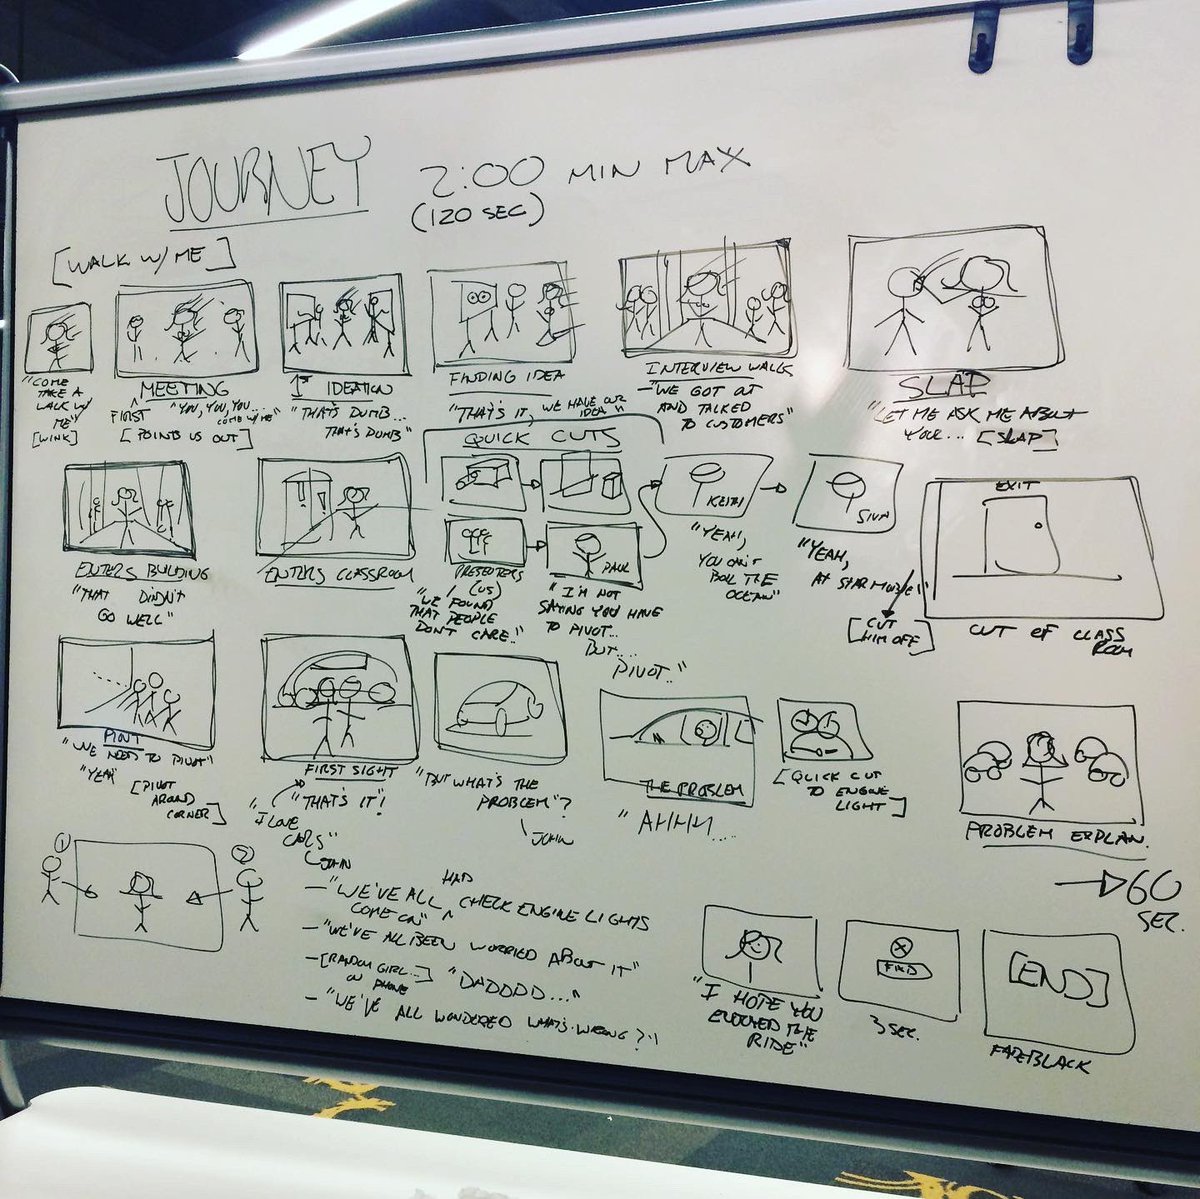 JOURNEY 2:00 MIN MAX
(120 SEC)
[WALK W/ ME]
"COME
TAKE A
WALK W/
ME"
[WINK]
FIRST MEETING
"YOU, YOU, YOU...
COME W/ ME"
[POINTS US OUT]
1ST IDEATION
"THAT'S DUMB...
THAT'S DUMB"
FINDING IDEA
"THAT'S IT, WE HAVE OUR
IDEA"
INTERVIEW WALK
"WE GOT OUT
AND TALKED
TO CUSTOMERS"
SLAP
"LET ME ASK ME ABOUT
YOUR... [SLAP]
ENTERS BUILDING
"THAT DIDN'T
GO WELL"
ENTERS CLASSROOM
QUICK CUTS
PRESENTERS
(US)
"WE FOUND
THAT PEOPLE
DON'T CARE.."
PAUL
"I'M NOT
SAYING YOU HAVE
TO PIVOT...
BUT....
PIVOT.."
KEITH
"YEAH,
YOU CAN'T
BOIL THE
OCEAN"
"YEAH,
AT
[CUT
HIM OFF]
EXIT
CUT OF CLASS
ROOM
PIVOT
"WE NEED TO PIVOT"
"YEAH"
[PIVOT
AROUND
CORNER]
FIRST SIGHT
"THAT'S IT!
"I LOVE
CARS"
JOHN
"BUT WHAT'S THE
PROBLEM"?
JOHN
THE PROBLEM
"AHHH....
[QUICK CUT
TO ENGINE
LIGHT]
PROBLEM EXPLAN.
→ 60
SEC.
1
2
- "WE'VE ALL HAD CHECK ENGINE LIGHTS
COME ON"
- "WE'VE ALL BEEN WORRIED ABOUT IT"
- [RANDOM GIRL...
ON PHONE] "DADDDD..."
- "WE'VE ALL WONDERED WHAT'S WRONG?"
"I HOPE YOU
ENJOYED THE
RIDE"
3 SEC.
[END]
FADE BLACK